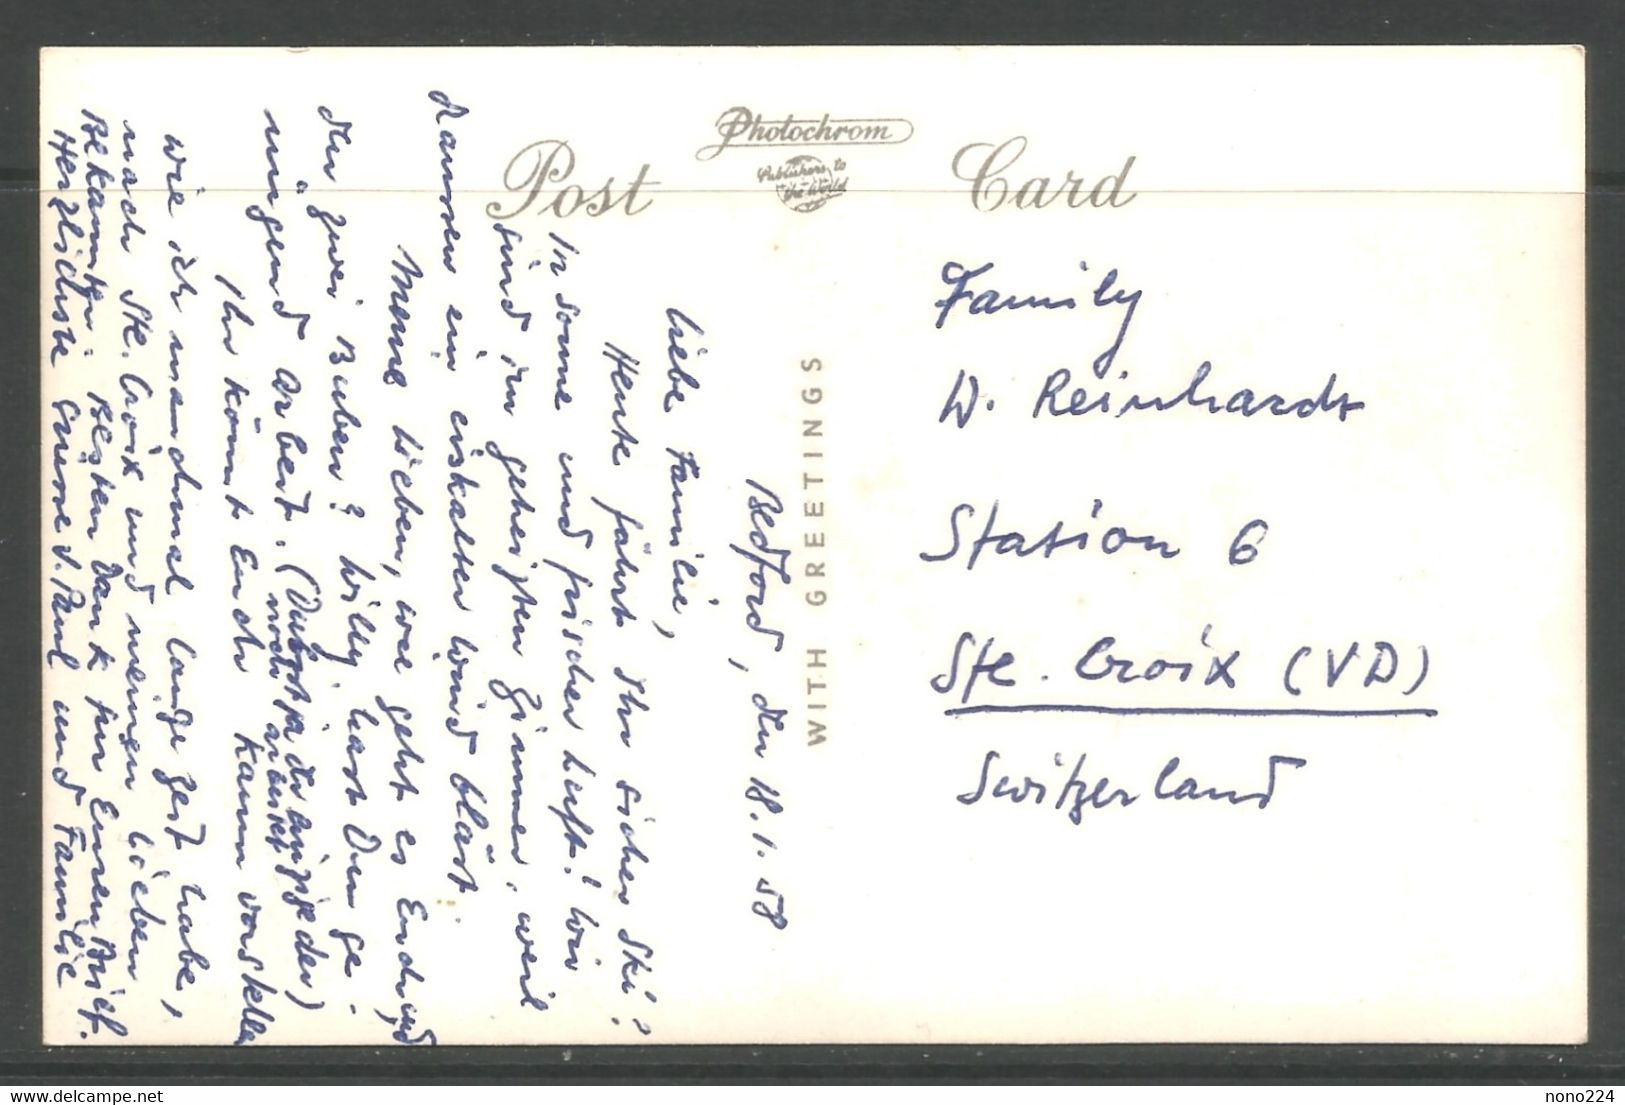 Post Card
Photochrom
Publishers to
the World
WITH GREETINGS
Family
W. Reinhardt
Station 6
Ste. Croix (VD)
Switzerland
Bedford, den 18.1.58
Liebe Familie,
Heute fährt Ihr sicher Ski!
In Sonne und frischer Luft! Wir
sind im geheizten Zimmer, weil
draussen ein eiskalter Wind bläst.
Meine Lieben, wie geht es Euch und
den zwei Buben? Willy, hast Du ge-
nügend Arbeit. (Du bist ja der einzige der)
noch arbeitet
Ihr könnt Euch kaum vorstellen
wie ich manchmal lange Zeit habe,
nach Ste. Croix und meinen lieben
Bekannten. Besten Dank für Euren Brief.
Herzlichste Grüsse v. Paul und Familie
delcampe.net
nono224